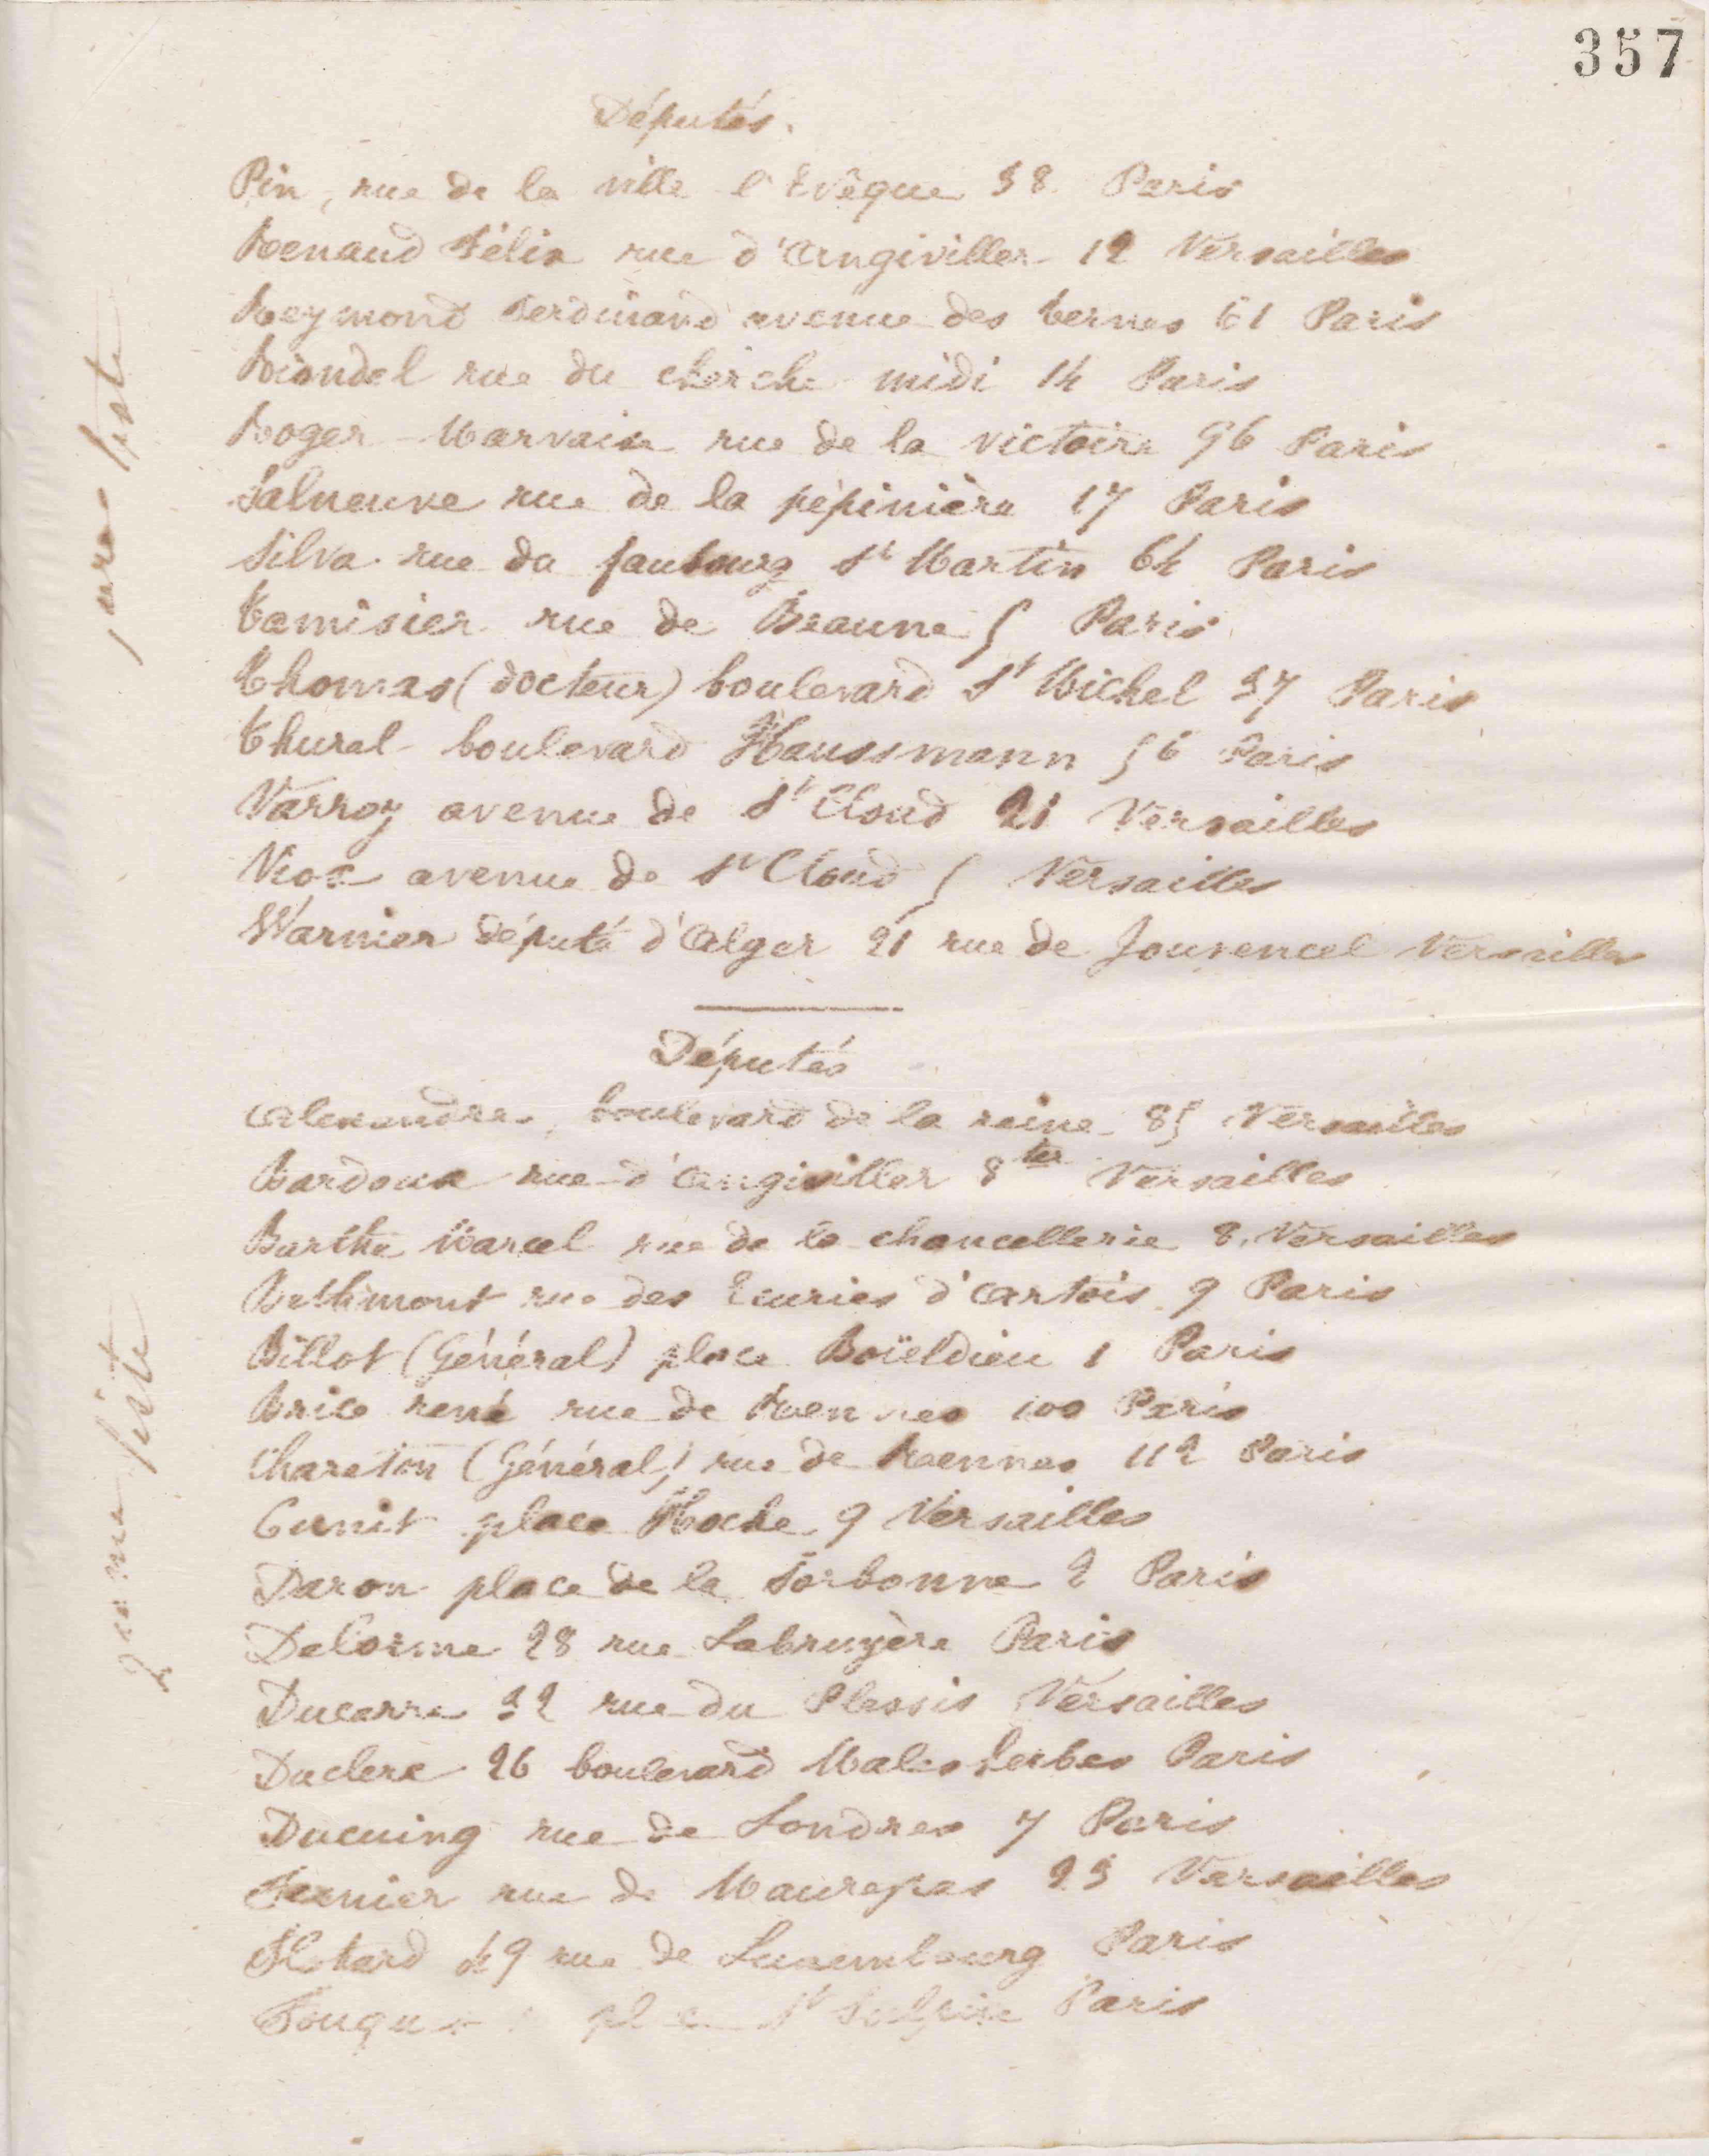 357
Députés.
Pin, rue de la ville l'Evêque 38 Paris
Renaud Félix rue d'Angiviller 12 Versailles
Reymond Ferdinand avenue des ternes 61 Paris
Riondel rue du cherche midi 14 Paris
Roger-Marvaise rue de la victoire 96 Paris
Salneuve rue de la pépinière 17 Paris
Silva rue du faubourg St Martin 64 Paris
Tamisier rue de Beaune 5 Paris
Thomas (docteur) boulevard St Michel 37 Paris
Thurel boulevard Haussmann 56 Paris
Varroy avenue de St Cloud 21 Versailles
Viox avenue de St Cloud 5 Versailles
Warnier député d'Alger 21 rue de Jouvencel Versailles
1ere liste
Députés
Alexandre, boulevard de la reine 85 Versailles
Bardoux rue d'Angiviller 8 ter Versailles
Barthe Marcel rue de la chancellerie 8. Versailles
Bethmont rue des Ecuries d'Artois 9 Paris
Billot (Général) place Boïeldieu 1 Paris
Brice rené rue de Rennes 100 Paris
Chareton (Général) rue de Rennes 112 Paris
Cunit place Hoche 9 Versailles
Daron place de la Sorbonne 2 Paris
Delorme 28 rue Labruyère Paris
Ducarre 32 rue du Plessis Versailles
Duclerc 26 boulevard Malesherbes Paris
Ducuing rue de Londres 7 Paris
Fernier rue de Maurepas 23 Versailles
Flotard 49 rue de Luxembourg Paris
Fouquet place St Sulpice Paris
2eme liste